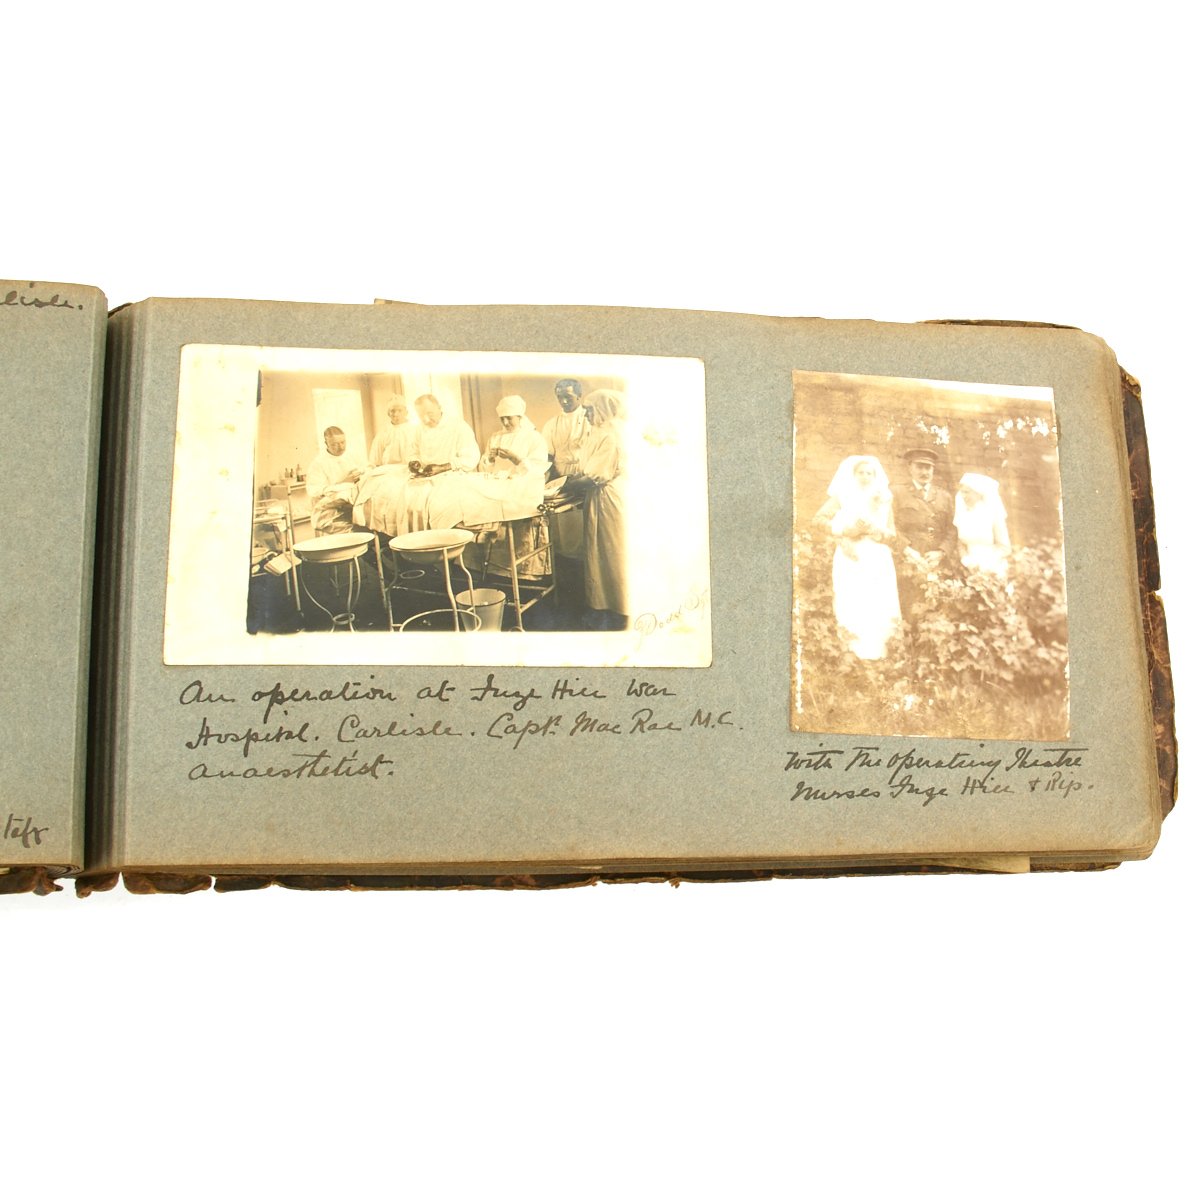 lisle.
taff
An operation at Fuze Hill War
Hospital. Carlisle. Capt. Mac Rae M.C.
anaesthetist.
With the operating Theatre
Nurses Fuze Hill & Rip.